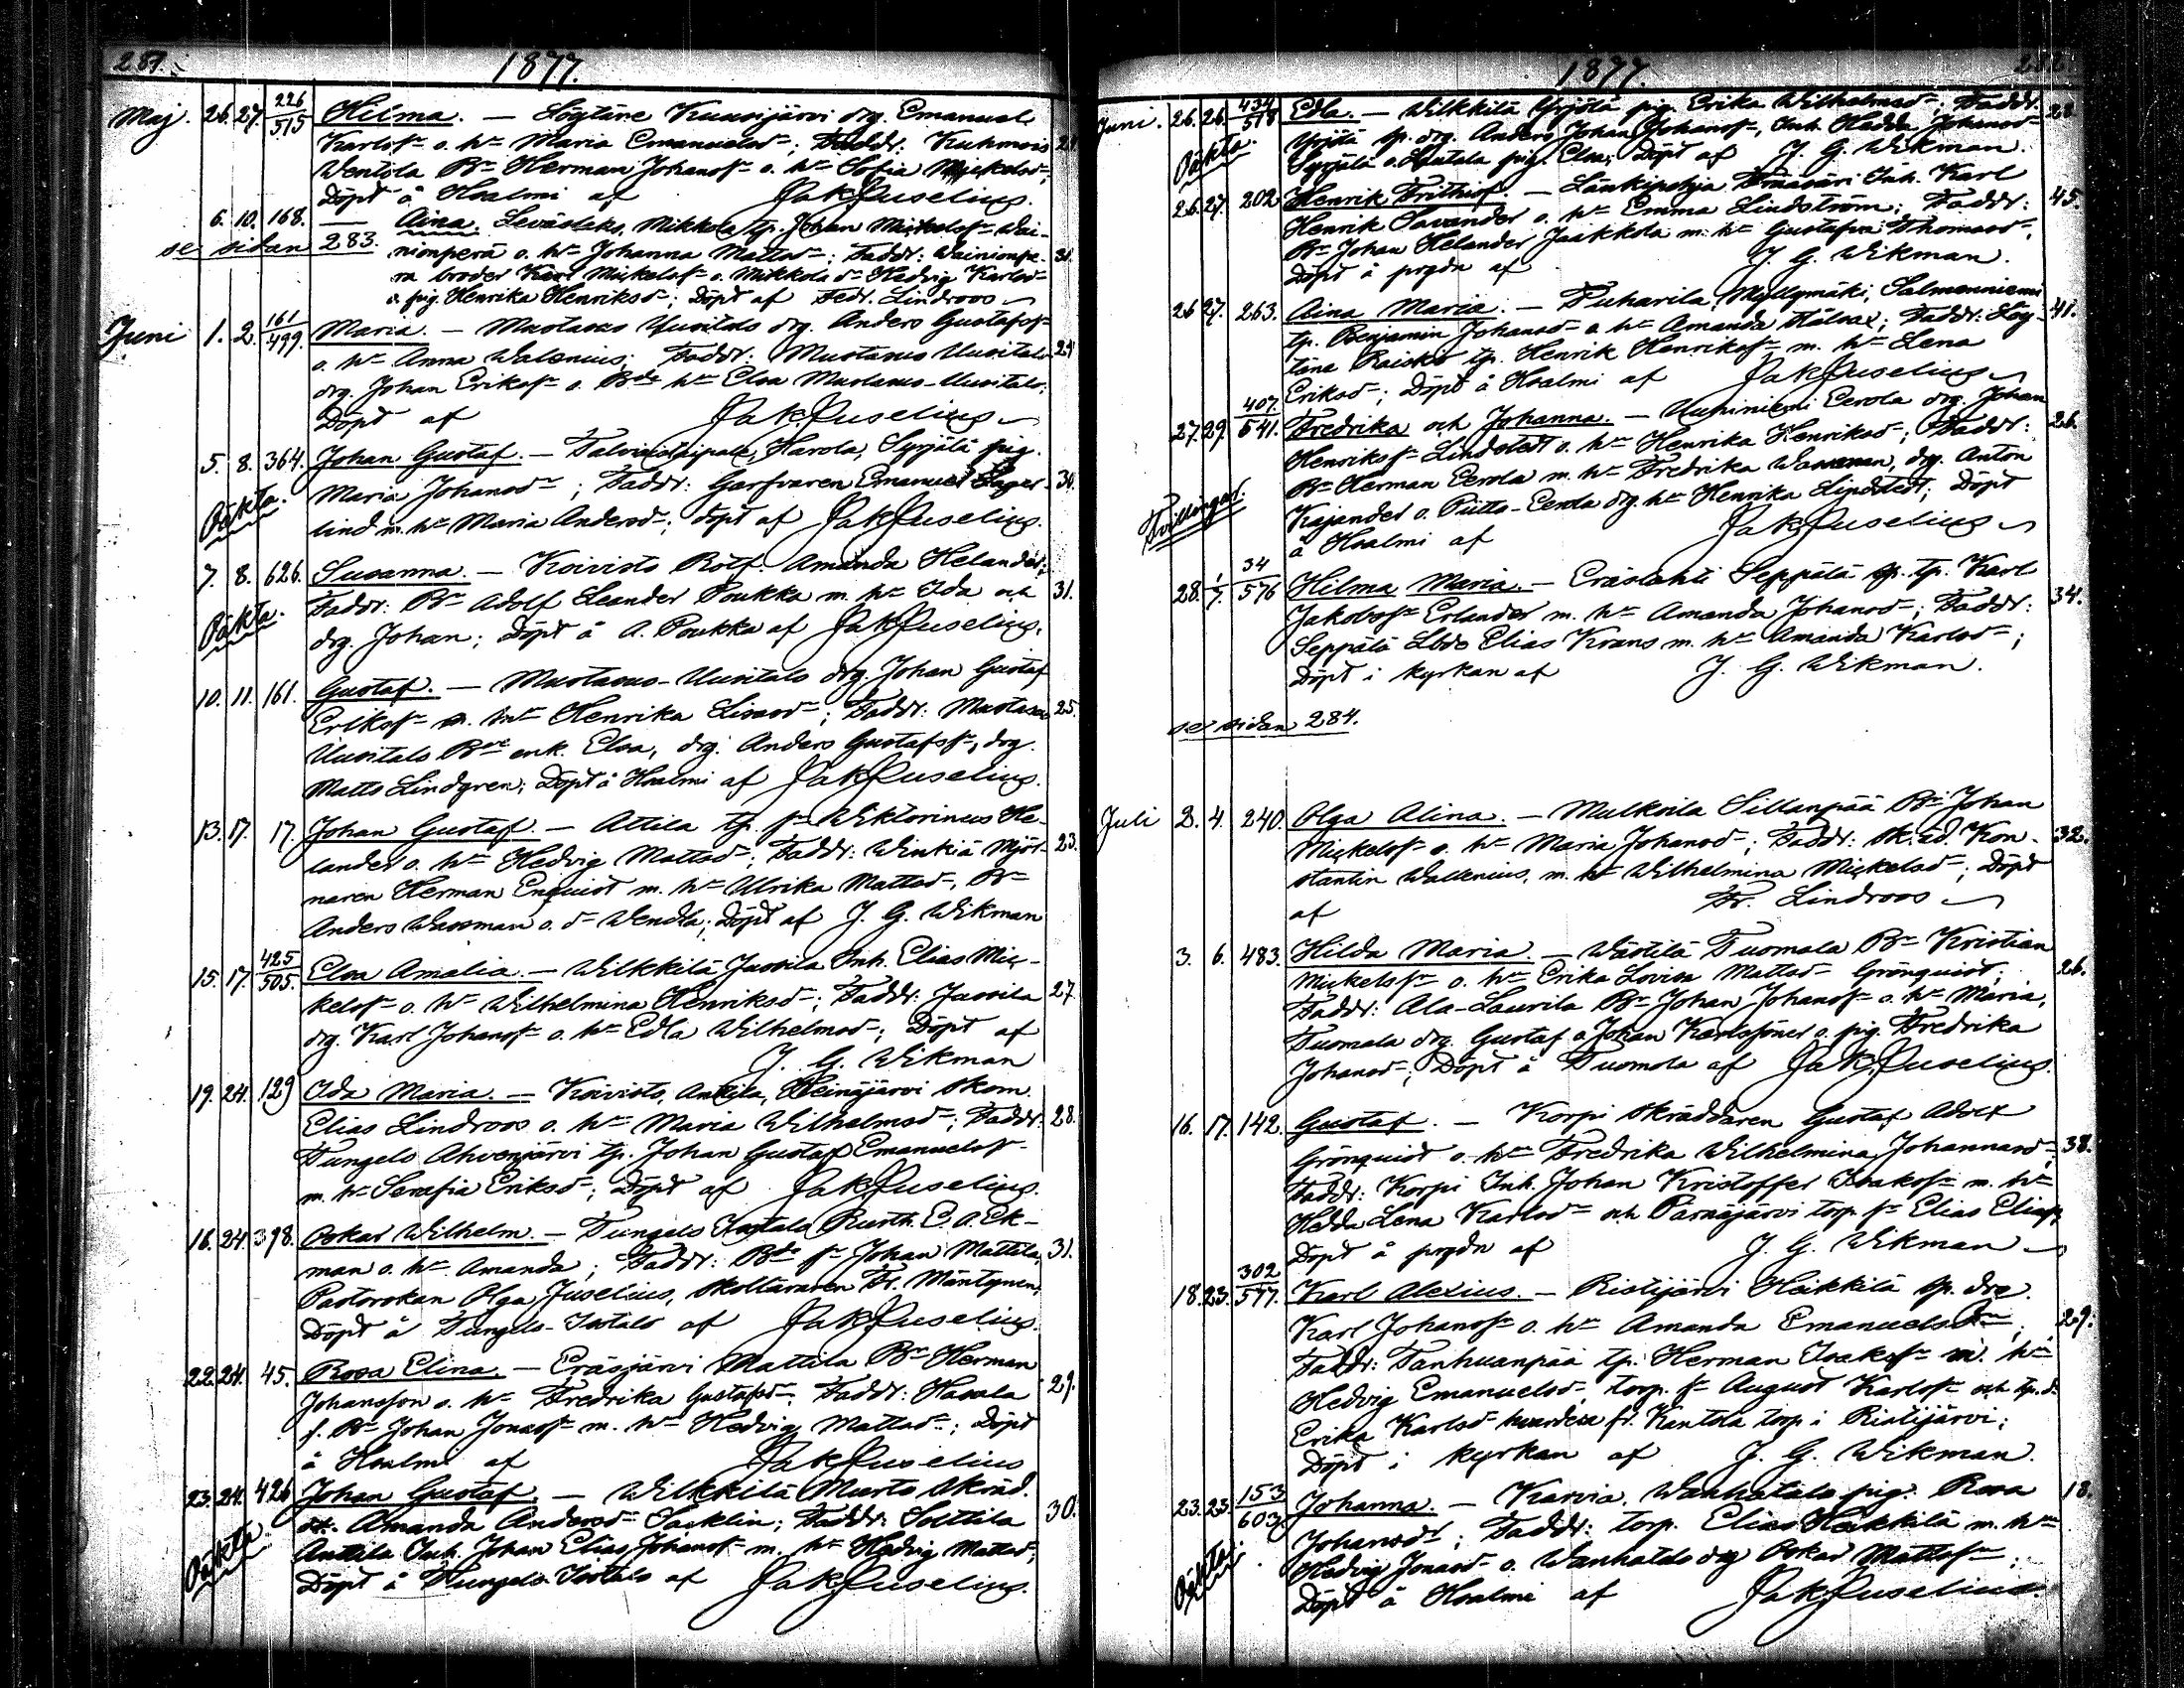 281.
1877.
Maj. 26. 27. 226/515 Hilma. — Löytäne Kuusijärvi drg. Emanuel
Karlsſn o. hn Maria Emanuelsd; Faddr. Kuhmois
Wentola Bn Herman Johansſn o. hn Sofia Mickelsd;
Döpt å Hvalmi af Jak Juselius.
6. 10. 168. — Aina. Leväslaks, Mikkola tp. Johan Mickelsſn Wai-
se sidan 283. nionperä o. hn Johanna Mattsd; Faddr: Wainionpe- 31.
rä broder Karl Mickelsſn o. Mikkola d Hedvig Karlsd
o. pig. Henrika Henriksd; Döpt af Fedr. Lindroos
Juni 1. 2. 161/499. Maria. — Mustasus Uusitalo drg. Anders Gustafsſn
o. hn Anna Walenius; Faddr: Mustasus Uusitalo 29
drg. Johan Eriksſn o. Bde hn Elsa Mustasus-Uusitalo;
Döpt af Jak Juselius
5. 8. 364. Johan Gustaf. — Talviaistaipale, Harola, Syrjälä pig.
Oäkta. Maria Johansd; Faddr: Garfvaren Emanuel Lager- 30.
lind m. hn Maria Andersd; Döpt af Jak Juselius.
7. 8. 626. Susanna. — Koivisto Rotf. Amanda Helander;
Oäkta. Faddr: Bn Adolf Leander Poukka m. hn Ida och 31.
drg. Johan; Döpt å A. Poukka af Jak Juselius.
10. 11. 161. Gustaf. — Mustasus-Uusitalo drg. Johan Gustaf
Eriksſn m. hn Henrika Lisasd; Faddr: Mustasus 25.
Uusitalo Bde enk. Elsa, drg. Anders Gustafsſn, drg.
Matts Lindgren; Döpt å Hvalmi af Jak Juselius.
13. 17. 17. Johan Gustaf. — Attila tp. ſn Wiktorinus He-
lander o. hn Hedvig Mattsd; Faddr: Winkiä Mjöl- 23.
naren Herman Enquist m. hn Ulrika Mattsd, Bn
Anders Wassman o. d Wendla; Döpt af J. G. Wikman
15. 17. 425/505. Elsa Amalia. — Wilkkilä Jussila Inh. Elias Mic-
kelsſn o. hn Wilhelmina Henriksd; Faddr. Jussila 27.
drg. Karl Johansſn o. hn Edla Wilhelmsd; Döpt af
J. G. Wikman
19. 24. 129 Ida Maria. — Koivisto, Anttila, Heinäjärvi skom.
Elias Lindroos o. hn Maria Wilhelmsd; Faddr: 28.
Tungelo Ahvenjärvi tp. Johan Gustaf Emanuelsſn
m. hn Serafia Eriksd; Döpt af Jak Juselius.
16. 24. 398. Oskar Wilhelm. — Tungelo Isotalo Rusth. E. A. Ek-
man o. hn Amanda; Faddr: Bde ſn Johan Mattila, 31.
Pastorskan Olga Juselius, skolläraren Fr. Mäntynen;
Döpt å Tungelo-Isotalo af Jak Juselius.
22. 24. 45. Rosa Elina. — Eräsjärvi Mattila Bn Herman
Johansson o. hn Fredrika Gustafsd; Faddr: Havala 29.
f. Bn Johan Jonasſn m. hn Hedvig Mattsd; Döpt
å Hvalmi af Jak Juselius
23. 24. 426 Johan Gustaf. — Wilkkilä Murto skräd.
Oäkta. Amanda Andersd Sacklin; Faddr: Solttila 30.
Anttila Inh. Johan Elias Johansſn m. hn Hedvig Mattsd;
Döpt å Tungelo-Isotalo af Jak Juselius.
282
1877.
Juni. 26. 26. 434/578 Edla. — Wilkkilä Yrjölä pig. Erika Wilhelmsd; Faddr. 28
Oäkta. Yrjölä sp. drg. Anders Johan Johansſn, Inh. Hedda Johansd
Syrjälä o. Lautala pig. Elsa; Döpt af J. G. Wikman.
26. 27. 202 Henrik Frithiof. — Länkipohja Inh. Karl
Henrik Savander o. hn Emma Lindström; Faddr: 45.
Bn Johan Helander Jaakkola m. hn Gustafva Thomasd;
Döpt å prgdn af J. G. Wikman.
26 27. 263. Aina Maria. — Puharila, Myllymäki, Salmenniemi
tp. Benjamin Johansd o. hn Amanda Hälvar; Faddr: Löy- 41.
täne Raisko tp. Henrik Henriksſn m. hn Lena
Eriksd; Döpt å Hvalmi af Jak Juselius
27. 29. 407/541. Fredrika och Johanna. — Uuhiniemi Eerola drg. Johan
Henriksſn Lindstedt o. hn Henrika Henriksd; Faddr: 26.
Bn Herman Eerola m. hn Fredrika Wassman, drg. Anton
Tvillingar. Kajander o. Piitto-Eerola drg. hn Henrika Lindstedt; Döpt
å Hvalmi af Jak Juselius
28. 1/7. 34/576 Hilma Maria. — Eräslahti Seppälä sp. tp. Karl
Jakobsſn Erlander m. hn Amanda Johansd; Faddr: 34.
Seppälä Lbde Elias Krans m. hn Amanda Karlsd;
Döpt i kyrkan af J. G. Wikman.
se sidan 284.
Juli 2. 4. 240. Olga Alina. — Mulkoila Sillanpää Bn Johan
Mickelsſn o. hn Maria Johansd; Faddr: sk. ed. Kon- 32.
stantin Wallenius, m. hn Wilhelmina Mickelsd; Döpt
af Fr. Lindroos
3. 6. 483. Hilda Maria. — Wästilä Tuomala Bn Kristian
Mickelsſn o. hn Erika Lovisa Mattsd Grönquist; 26.
Faddr: Ala-Laurila Bn Johan Johansſn o. hn Maria,
Tuomala drg. Gustaf o. Johan Karlssöner o. pig. Fredrika
Johansd; Döpt å Tuomola af Jak Juselius.
16. 17. 142. Gustaf. — Korpi skräddaren Gustaf Adolf
Grönquist o. hn Fredrika Wilhelmina Johannesd; 38.
Faddr: Korpi Inh. Johan Kristoffer Isaksſn m. hn
Hedda Lena Karlsd och Pärnäjärvi torp. ſn Elias Eliasſn;
Döpt å prgdn af J. G. Wikman
18. 23. 302/577. Karl Alexius. — Ristijärvi Heikkilä sp. drg.
Karl Johansſn o. hn Amanda Emanuelsd; 29.
Faddr: Tanhuanpää tp. Herman Isaksſn m. hn
Hedvig Emanuelsd, torp. ſn August Karlsſn och tp. d.
Erika Karlsd fr. Kantola torp i Ristijärvi;
Döpt i kyrkan af J. G. Wikman.
23. 23. 153/603 Johanna. — Karvia, Wanhatalo pig. Rosa 18.
Oäkta. Johansd; Faddr: torp. Elias Heikkilä m. hn
Hedvig Jonasd o. Wanhatalo drg Oskar Mattsſn;
Döpt å Hvalmi af Jak Juselius.